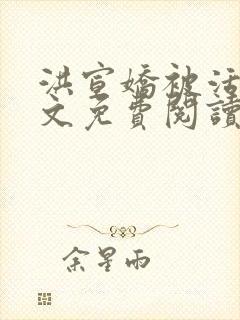 洪宣嬌被活
文免費閱讀
余星雨